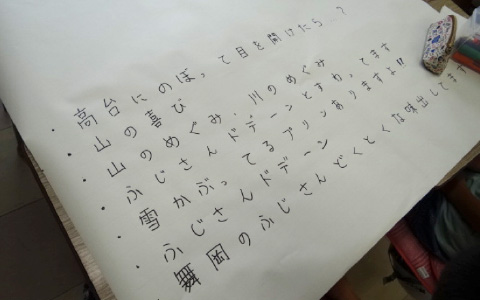 ・高台にのぼって目を開けたら…?
・山の喜び
・山のめぐみ・川のめぐみ
・ふじさんドデーンとすわってます
・雪かぶってるプリンありますよ!!
・ふじさんドデーン
・舞岡のふじさんどくとくな味出してます